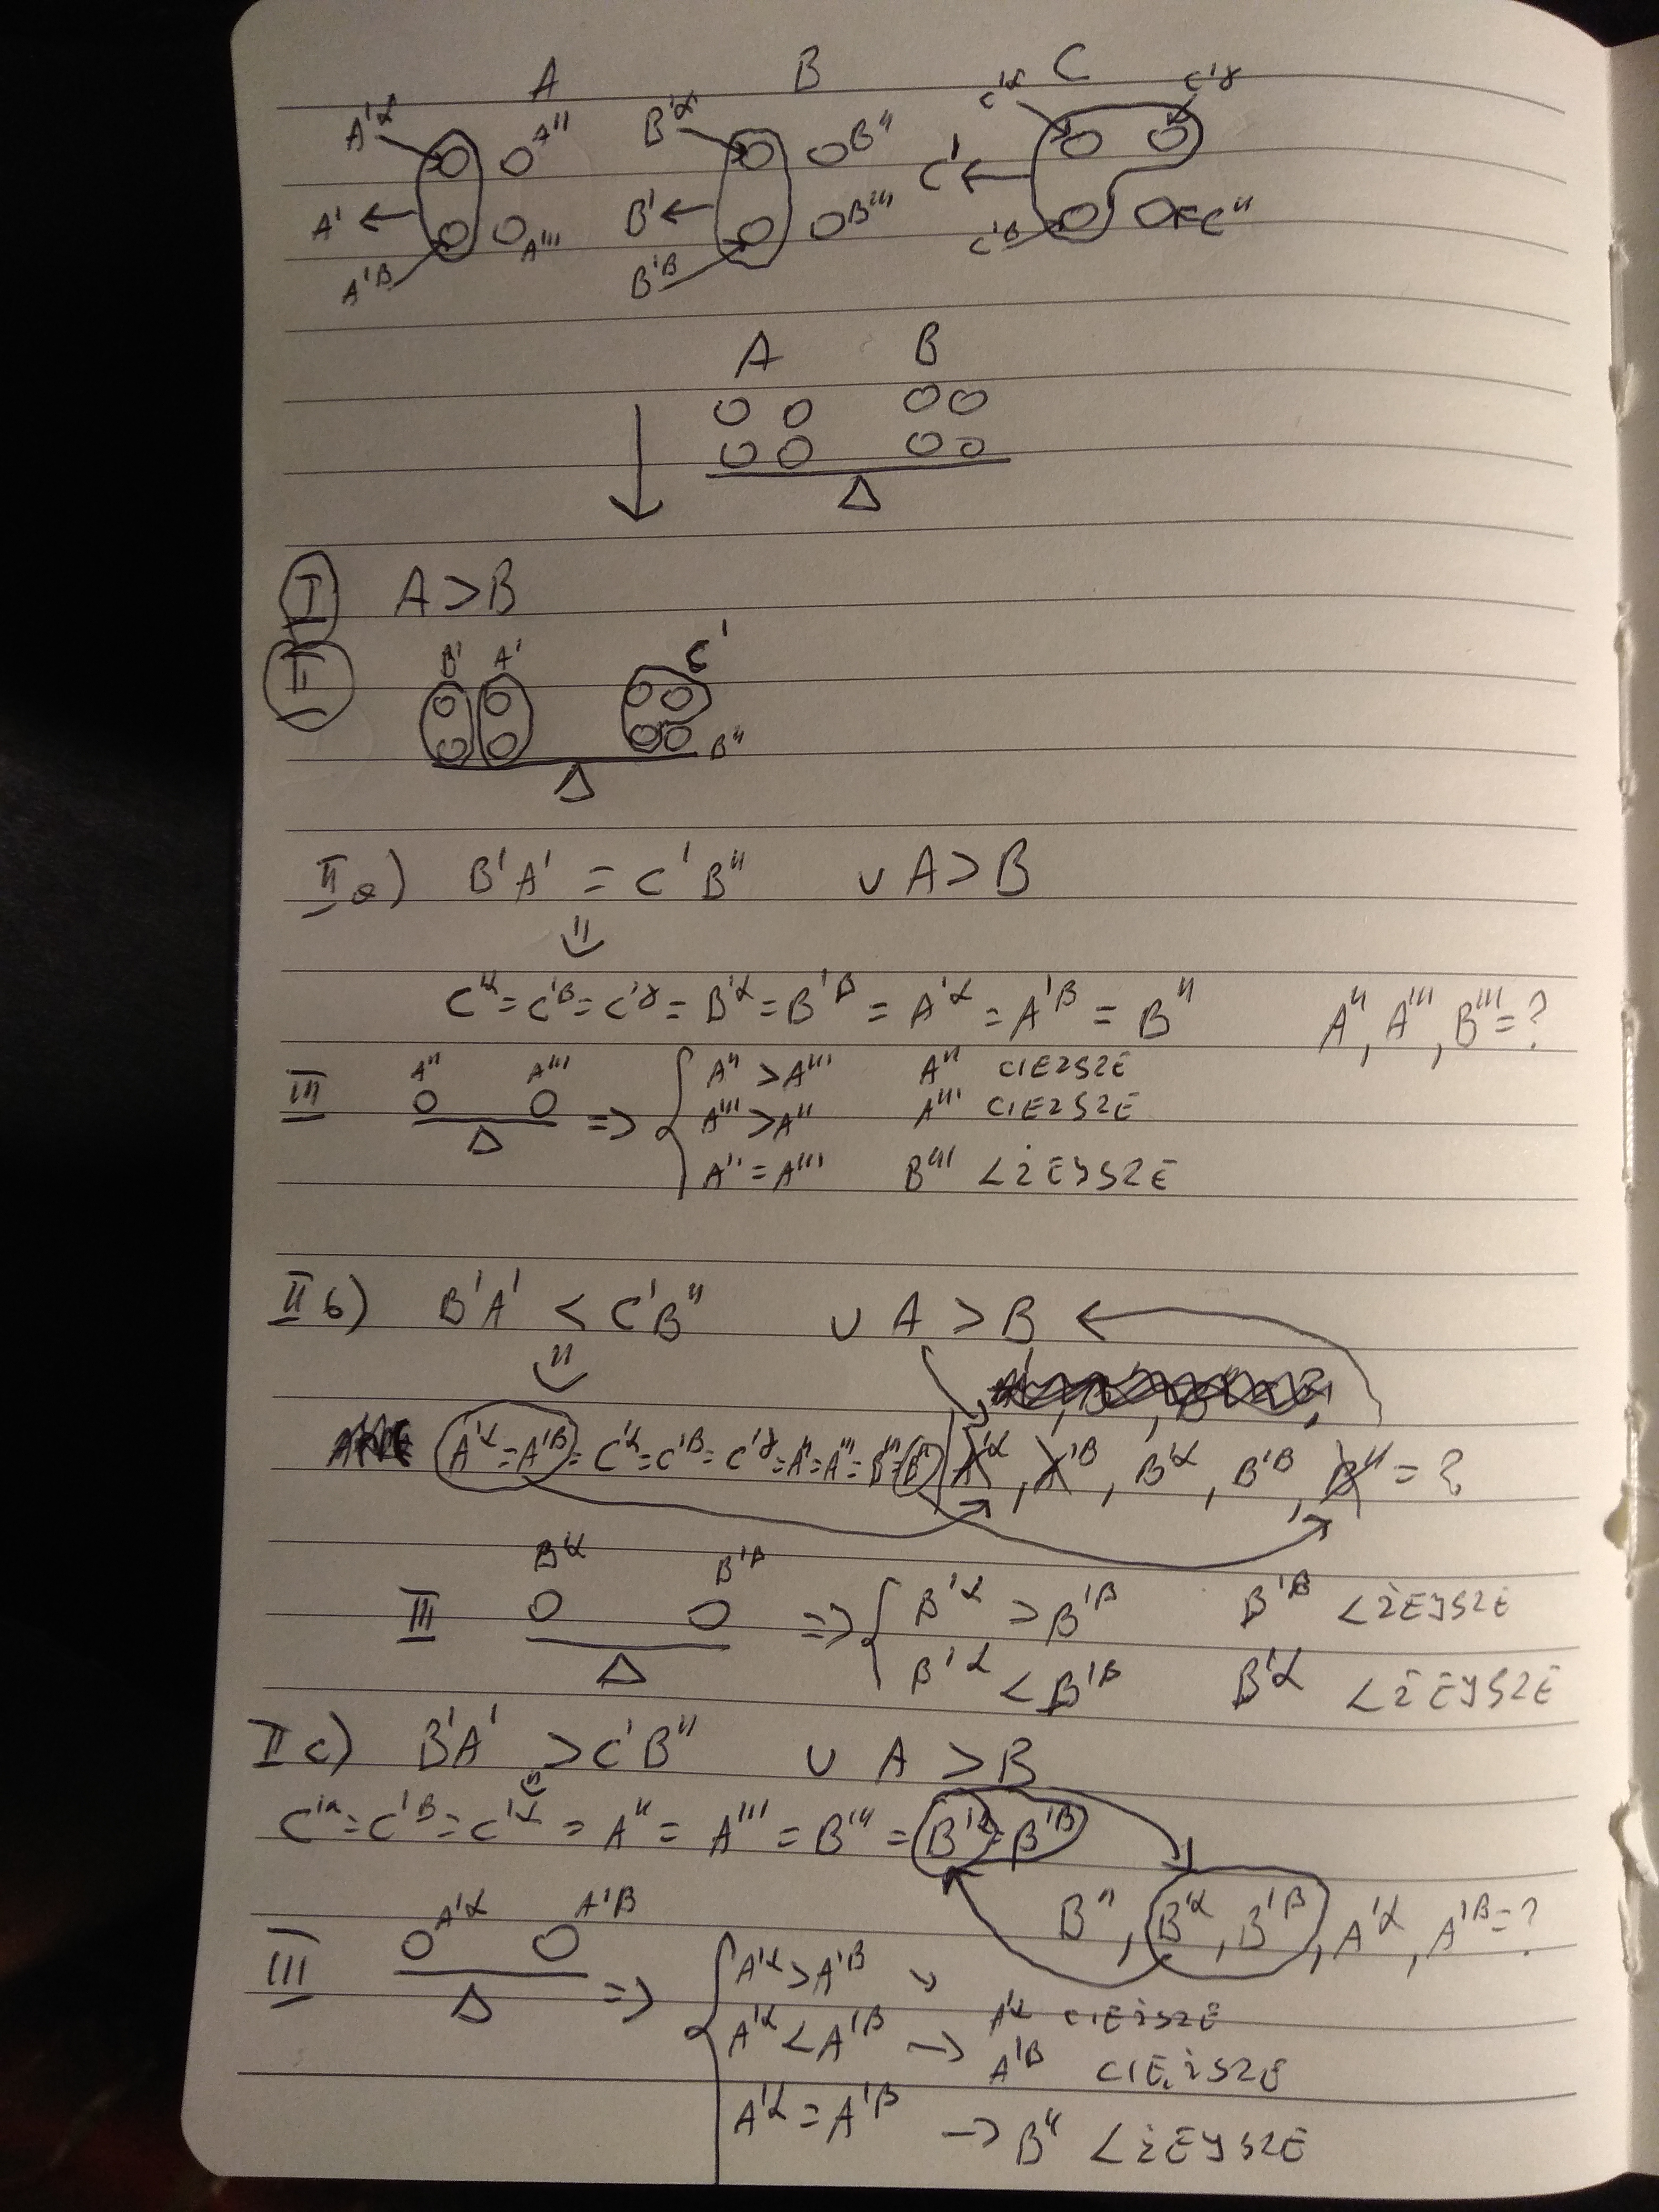 A B C
A'α A'' B'α B'' C'α C'γ
A' A''' B' B''' C' C''
A'β B'β C'β
A B
I A>B
II B' A' C'
B''
IIa) B'A' = C'B'' ∪ A>B
C'α = C'β = C'γ = B'α = B'β = A'α = A'β = B'' A'', A''', B''' = ?
III A'' A''' => A'' > A''' A'' CIEZSZE
A''' > A'' A''' CIEZSZE
A'' = A''' B''' LŻEJSZE
IIb) B'A' < C'B'' ∪ A > B
A'α = A'β = C'α = C'β = C'γ = A'' = A''' = B''' = B'' A'α, A'β, B'α, B'β, B'' = ?
III B'α B'β => B'α > B'β B'β LŻEJSZE
B'α < B'β B'α LŻEJSZE
IIc) B'A' > C'B'' ∪ A > B
C'α = C'β = C'γ = A'' = A''' = B''' = B'α = B'β
B'', B'α, B'β, A'α, A'β = ?
III A'α A'β => A'α > A'β A'α CIEŻSZE
A'α < A'β -> A'β CIEŻSZE
A'α = A'β -> B'' LŻEJSZE